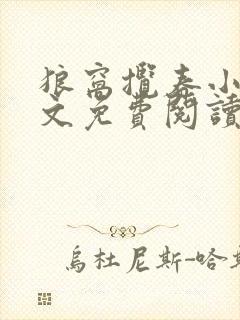 狼窩攬春小
文免費閱讀
烏杜尼斯-哈斯